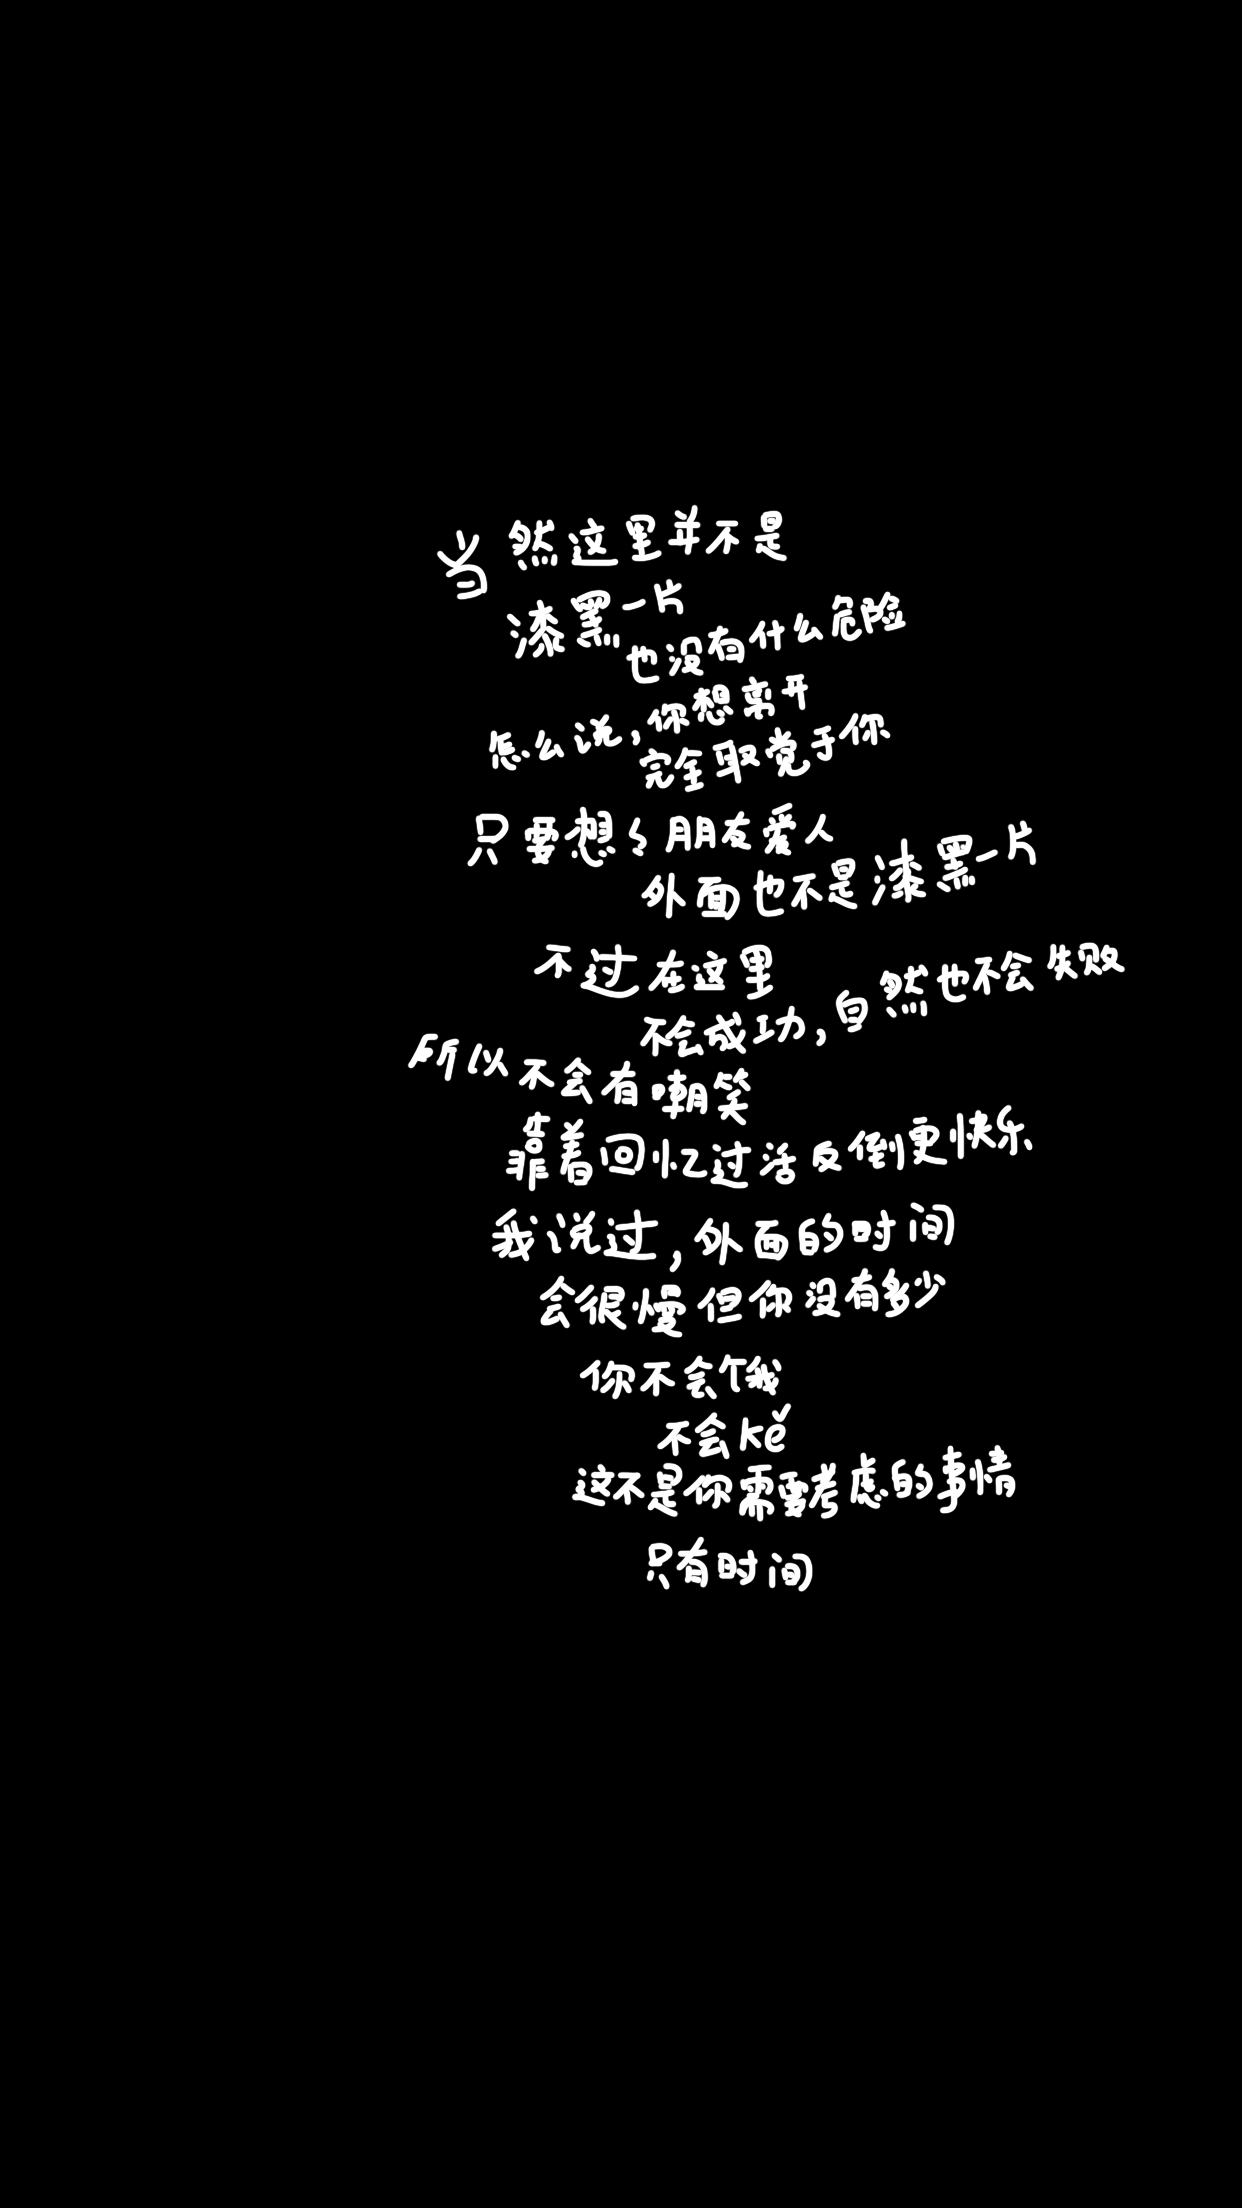 当然这里并不是
漆黑一片
也没有什么危险
怎么说,你想离开
完全取党于你
只要想々朋友爱人
外面也不是漆黑一片
不过在这里
不会成功,自然也不会失败
所以不会有嘲笑
靠着回忆过活反倒更快乐
我说过,外面的时间
会很慢但你没有多少
你不会饿
不会kě
这不是你需要考虑的事情
只有时间